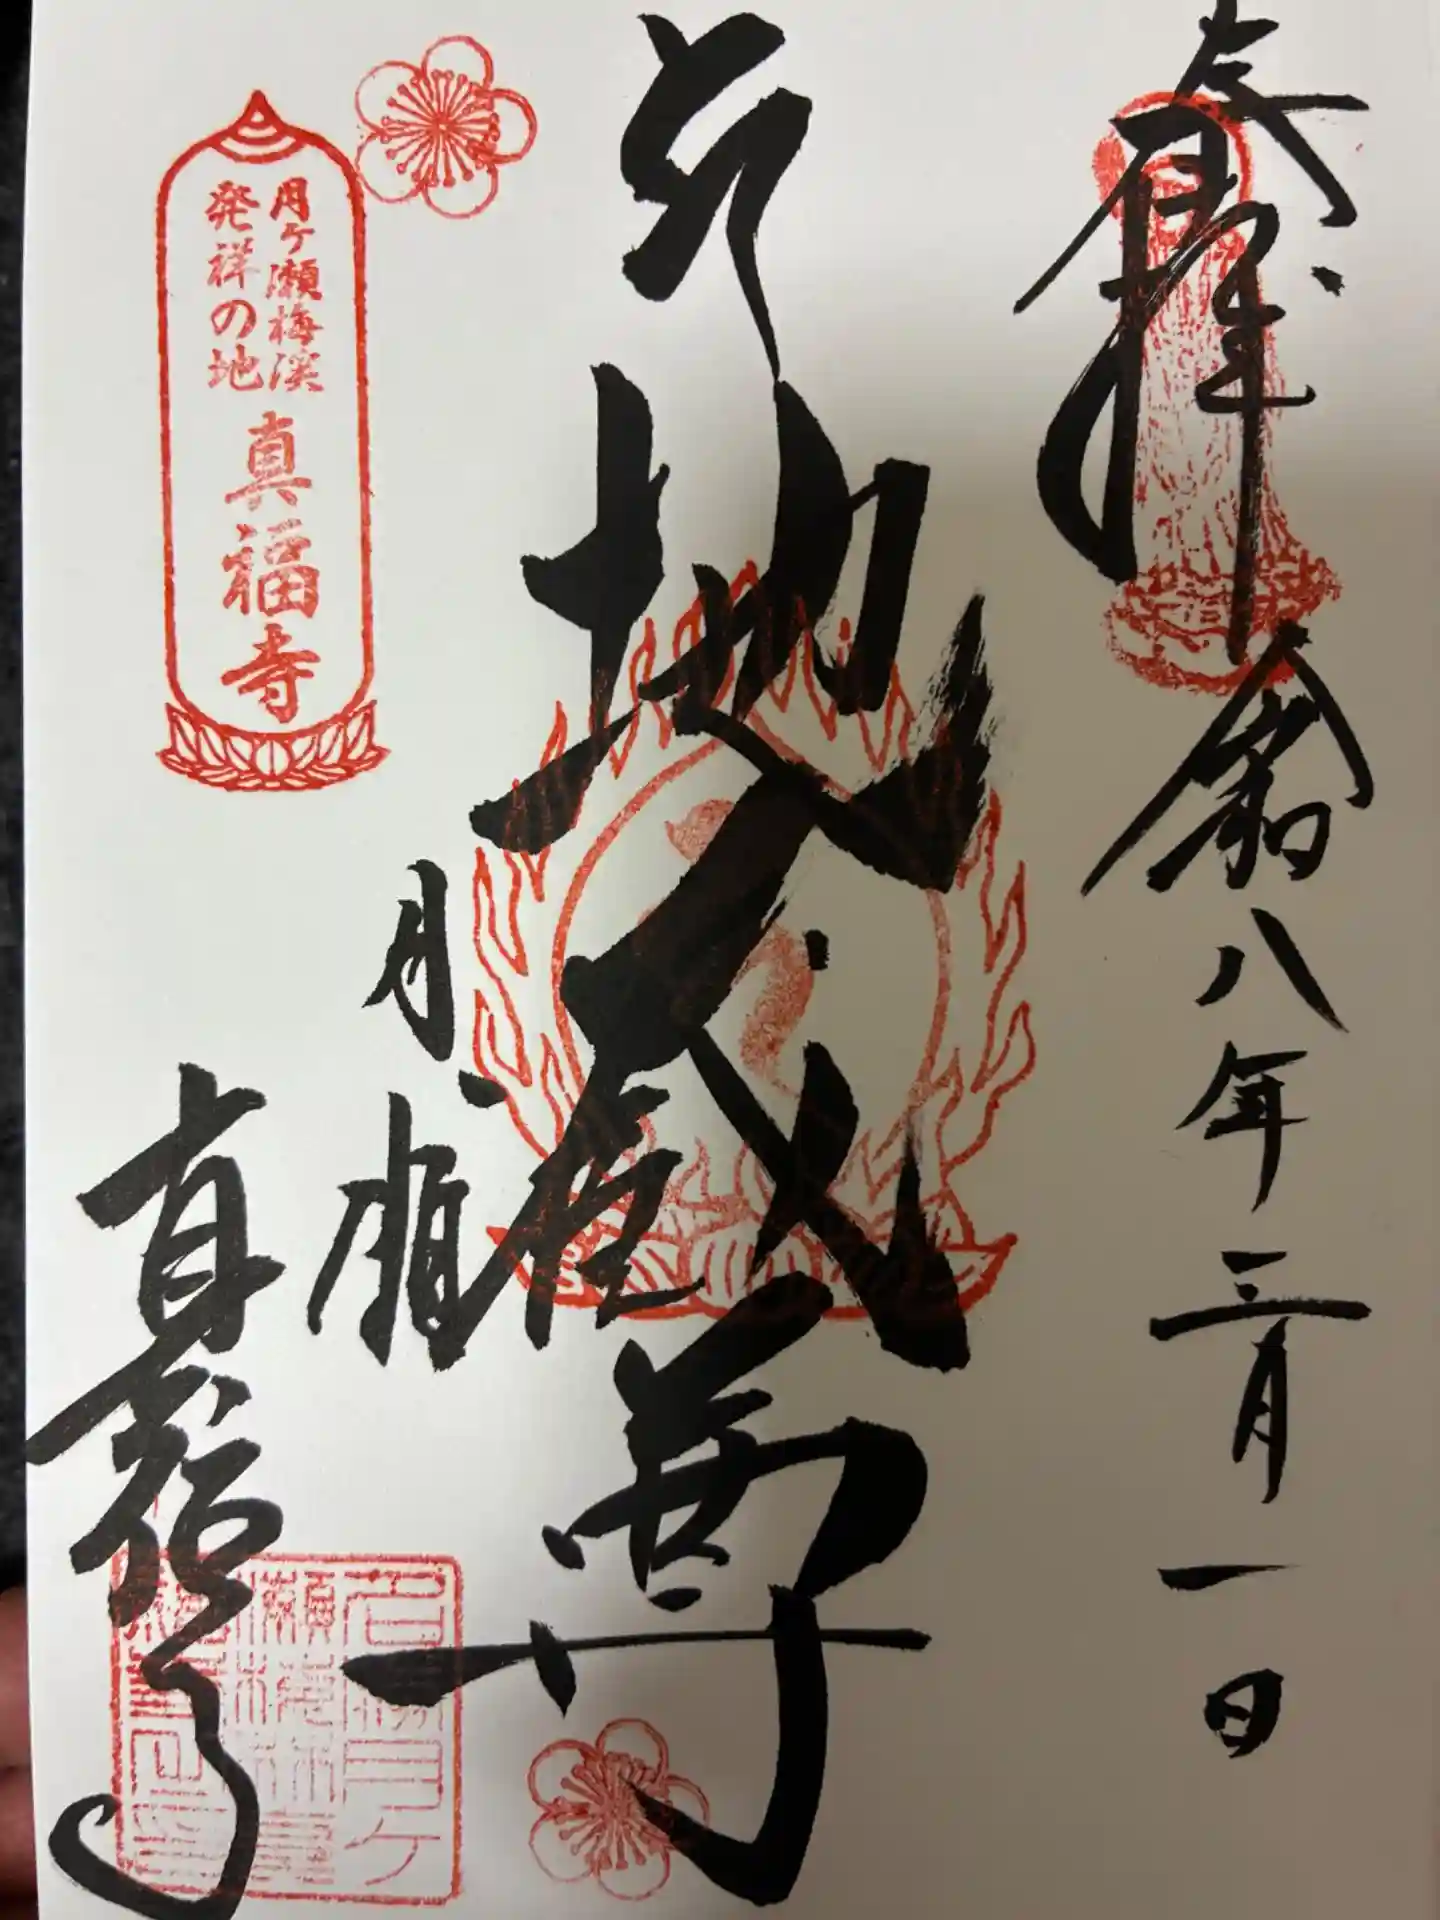 奉拝
令和八年三月一日
地蔵尊
月ヶ瀬
真福寺
月ヶ瀬梅渓
発祥の地
真福寺